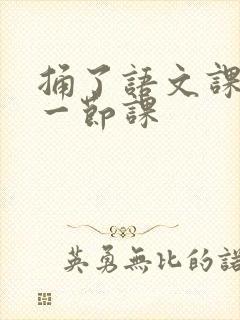 捅了語文課
一節課
英勇無比的諾